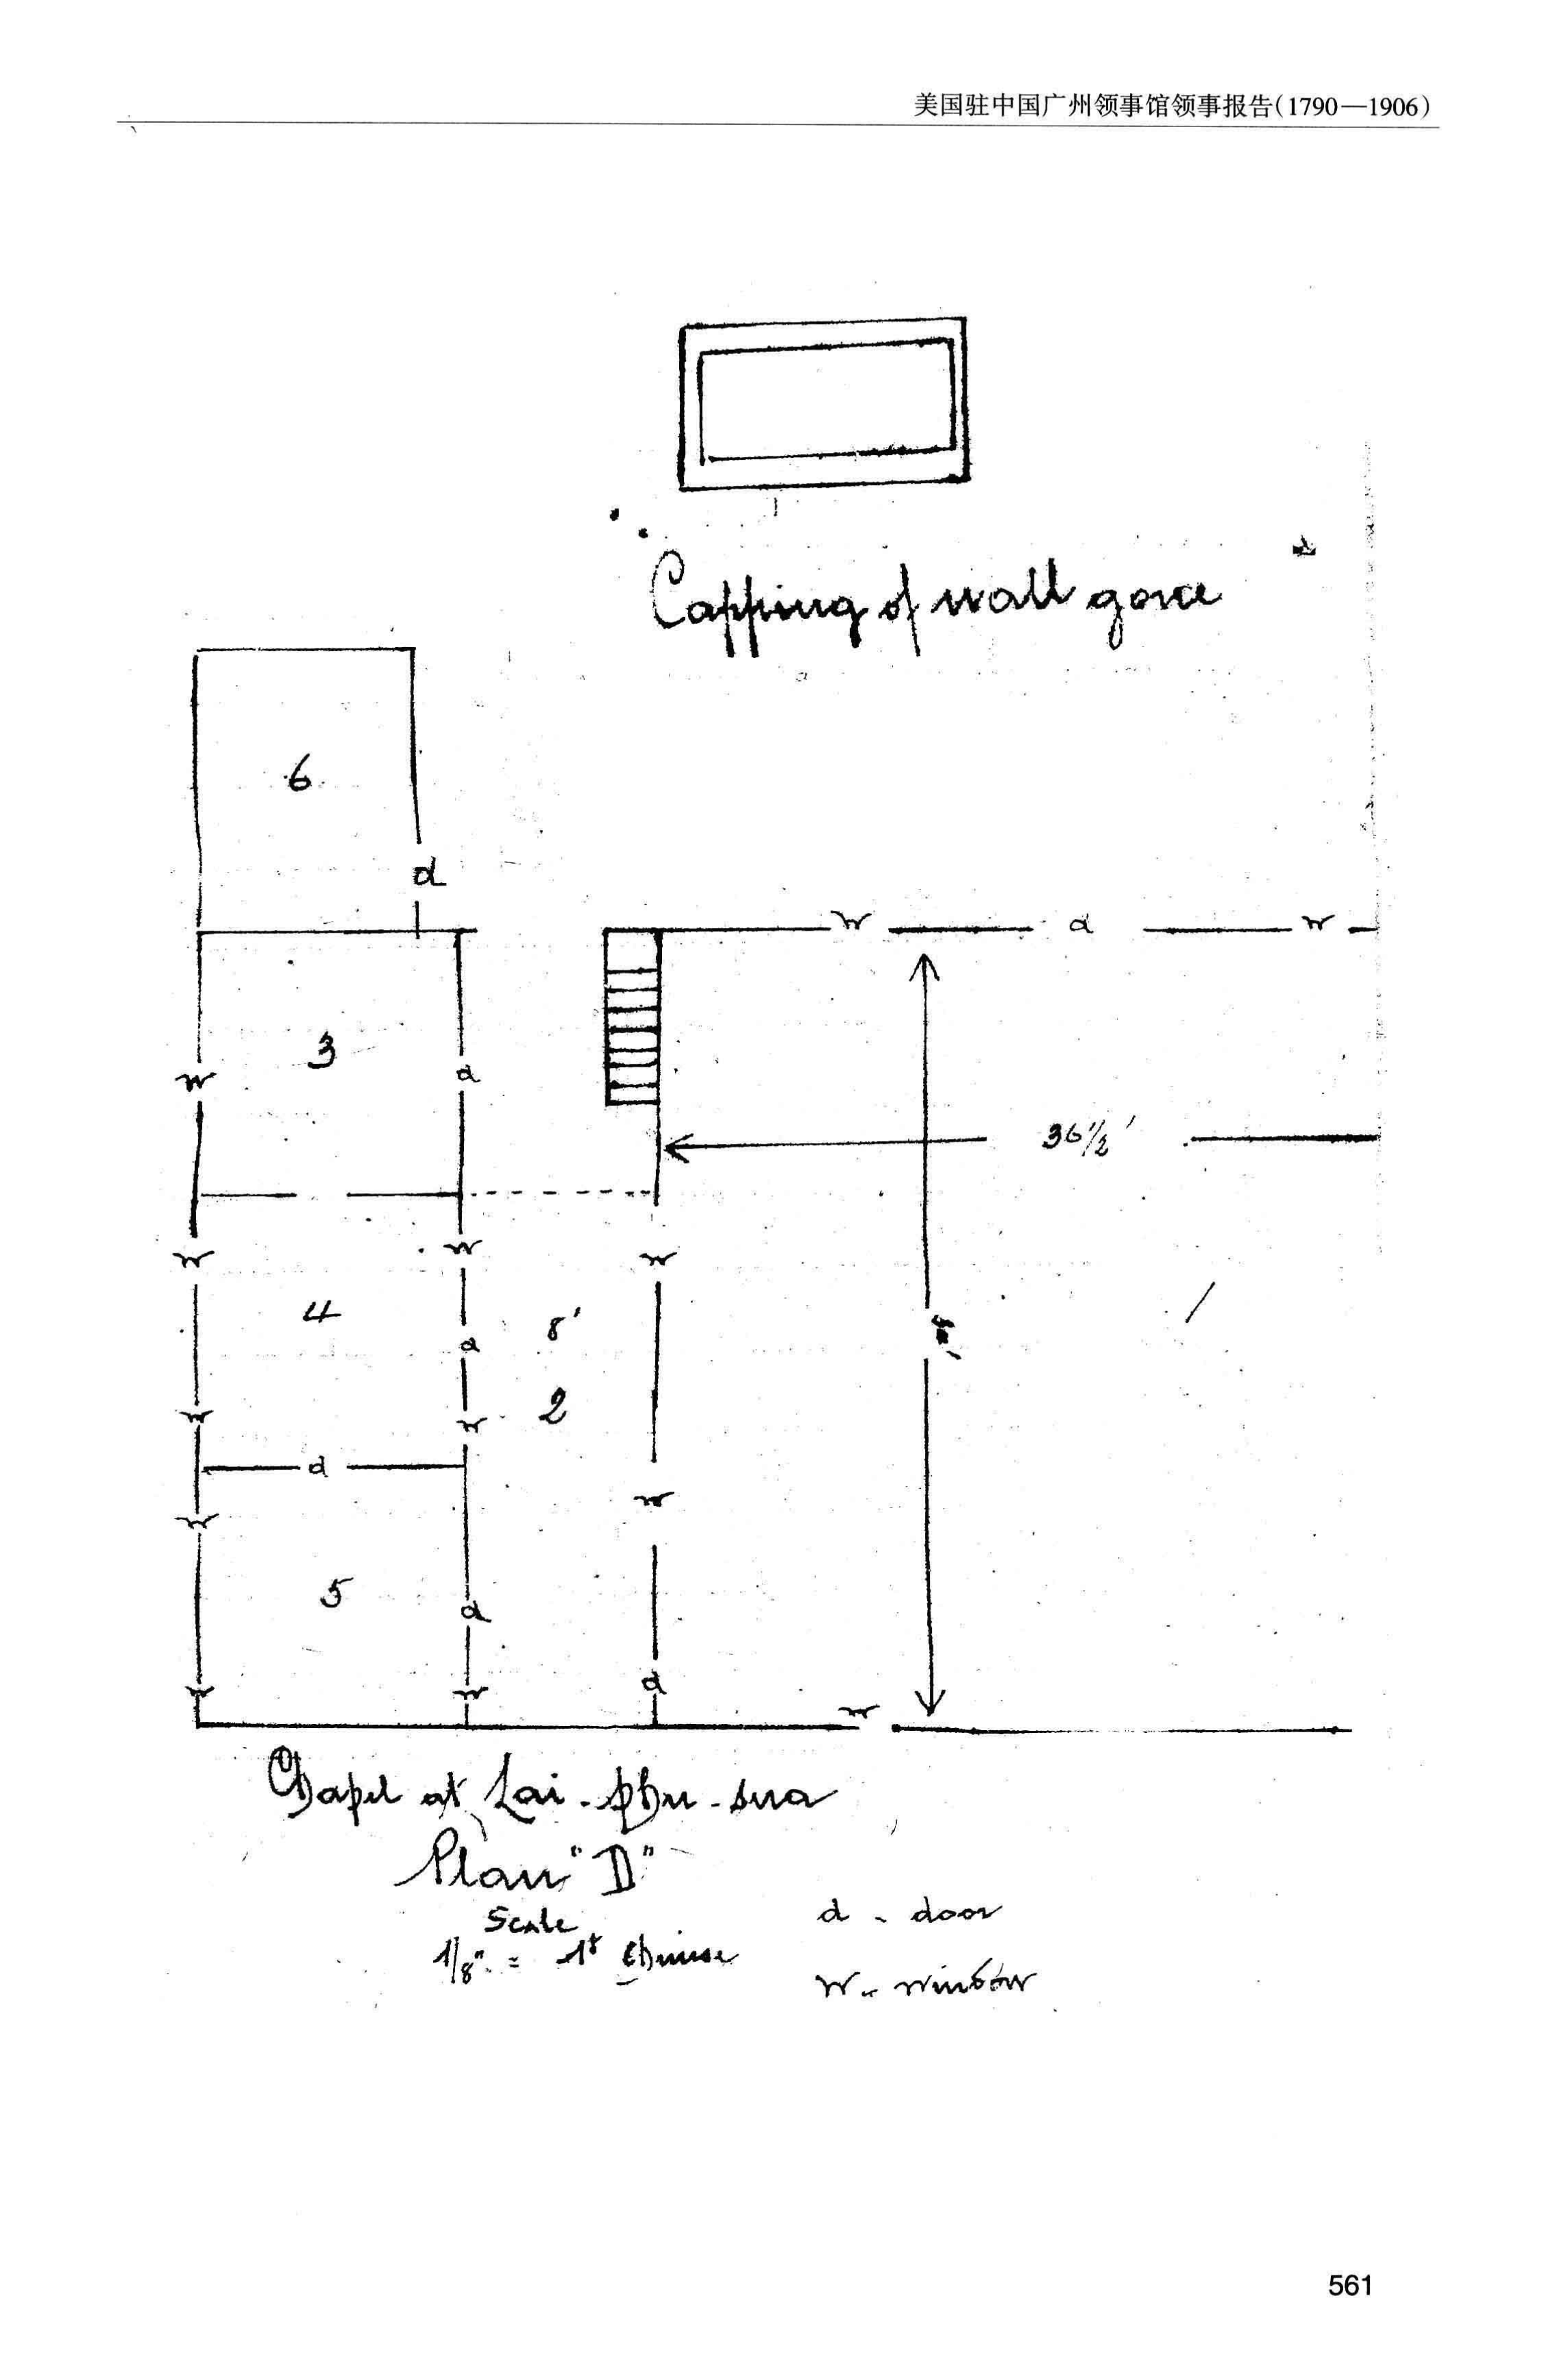 美国驻中国广州领事馆领事报告(1790—1906)
Capping of wall gone
6
d
w d w
3
w d
36 1/2'
w w w
4 8'
d
1
2
w w
d
w
w
5
d
w w d w
Chapel at Lai-phu-sua
Plan "D"
Scale
1/8" = 1ft Chinese
d - door
w - window
561